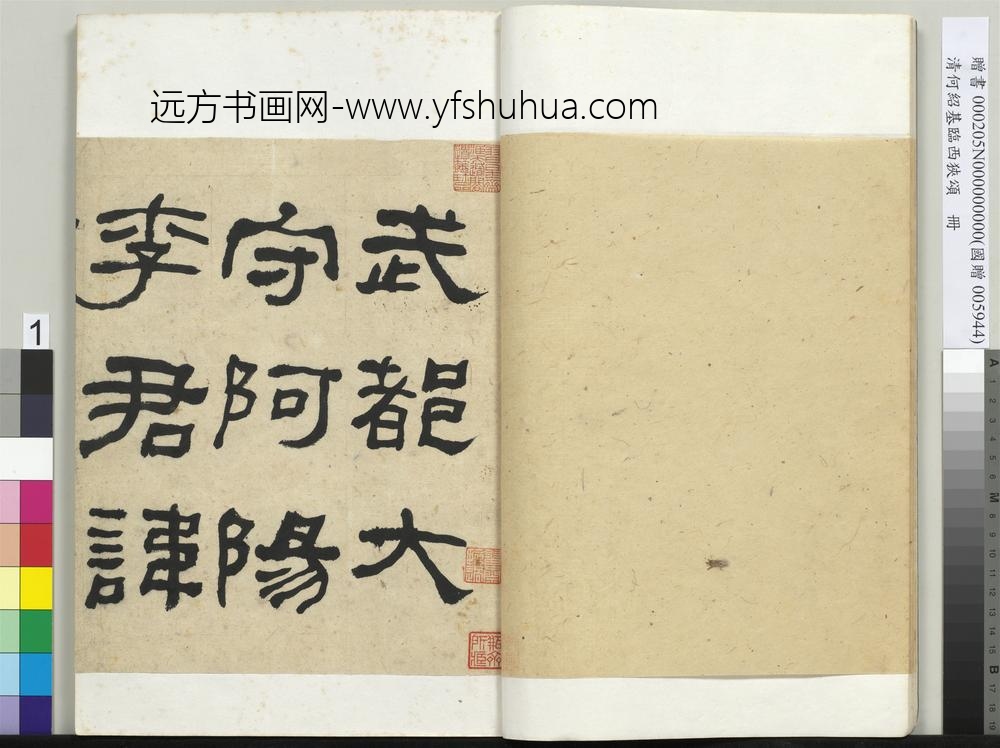 远方书画网-www.yfshuhua.com
武都大
守阿陽
李君諱
贈書 000205N000000000(國贈 005944)
清何紹基臨西狹頌 冊
1
A 1 2 3 4 5 6 M 8 9 10 11 12 13 14 15 B 17 18 19